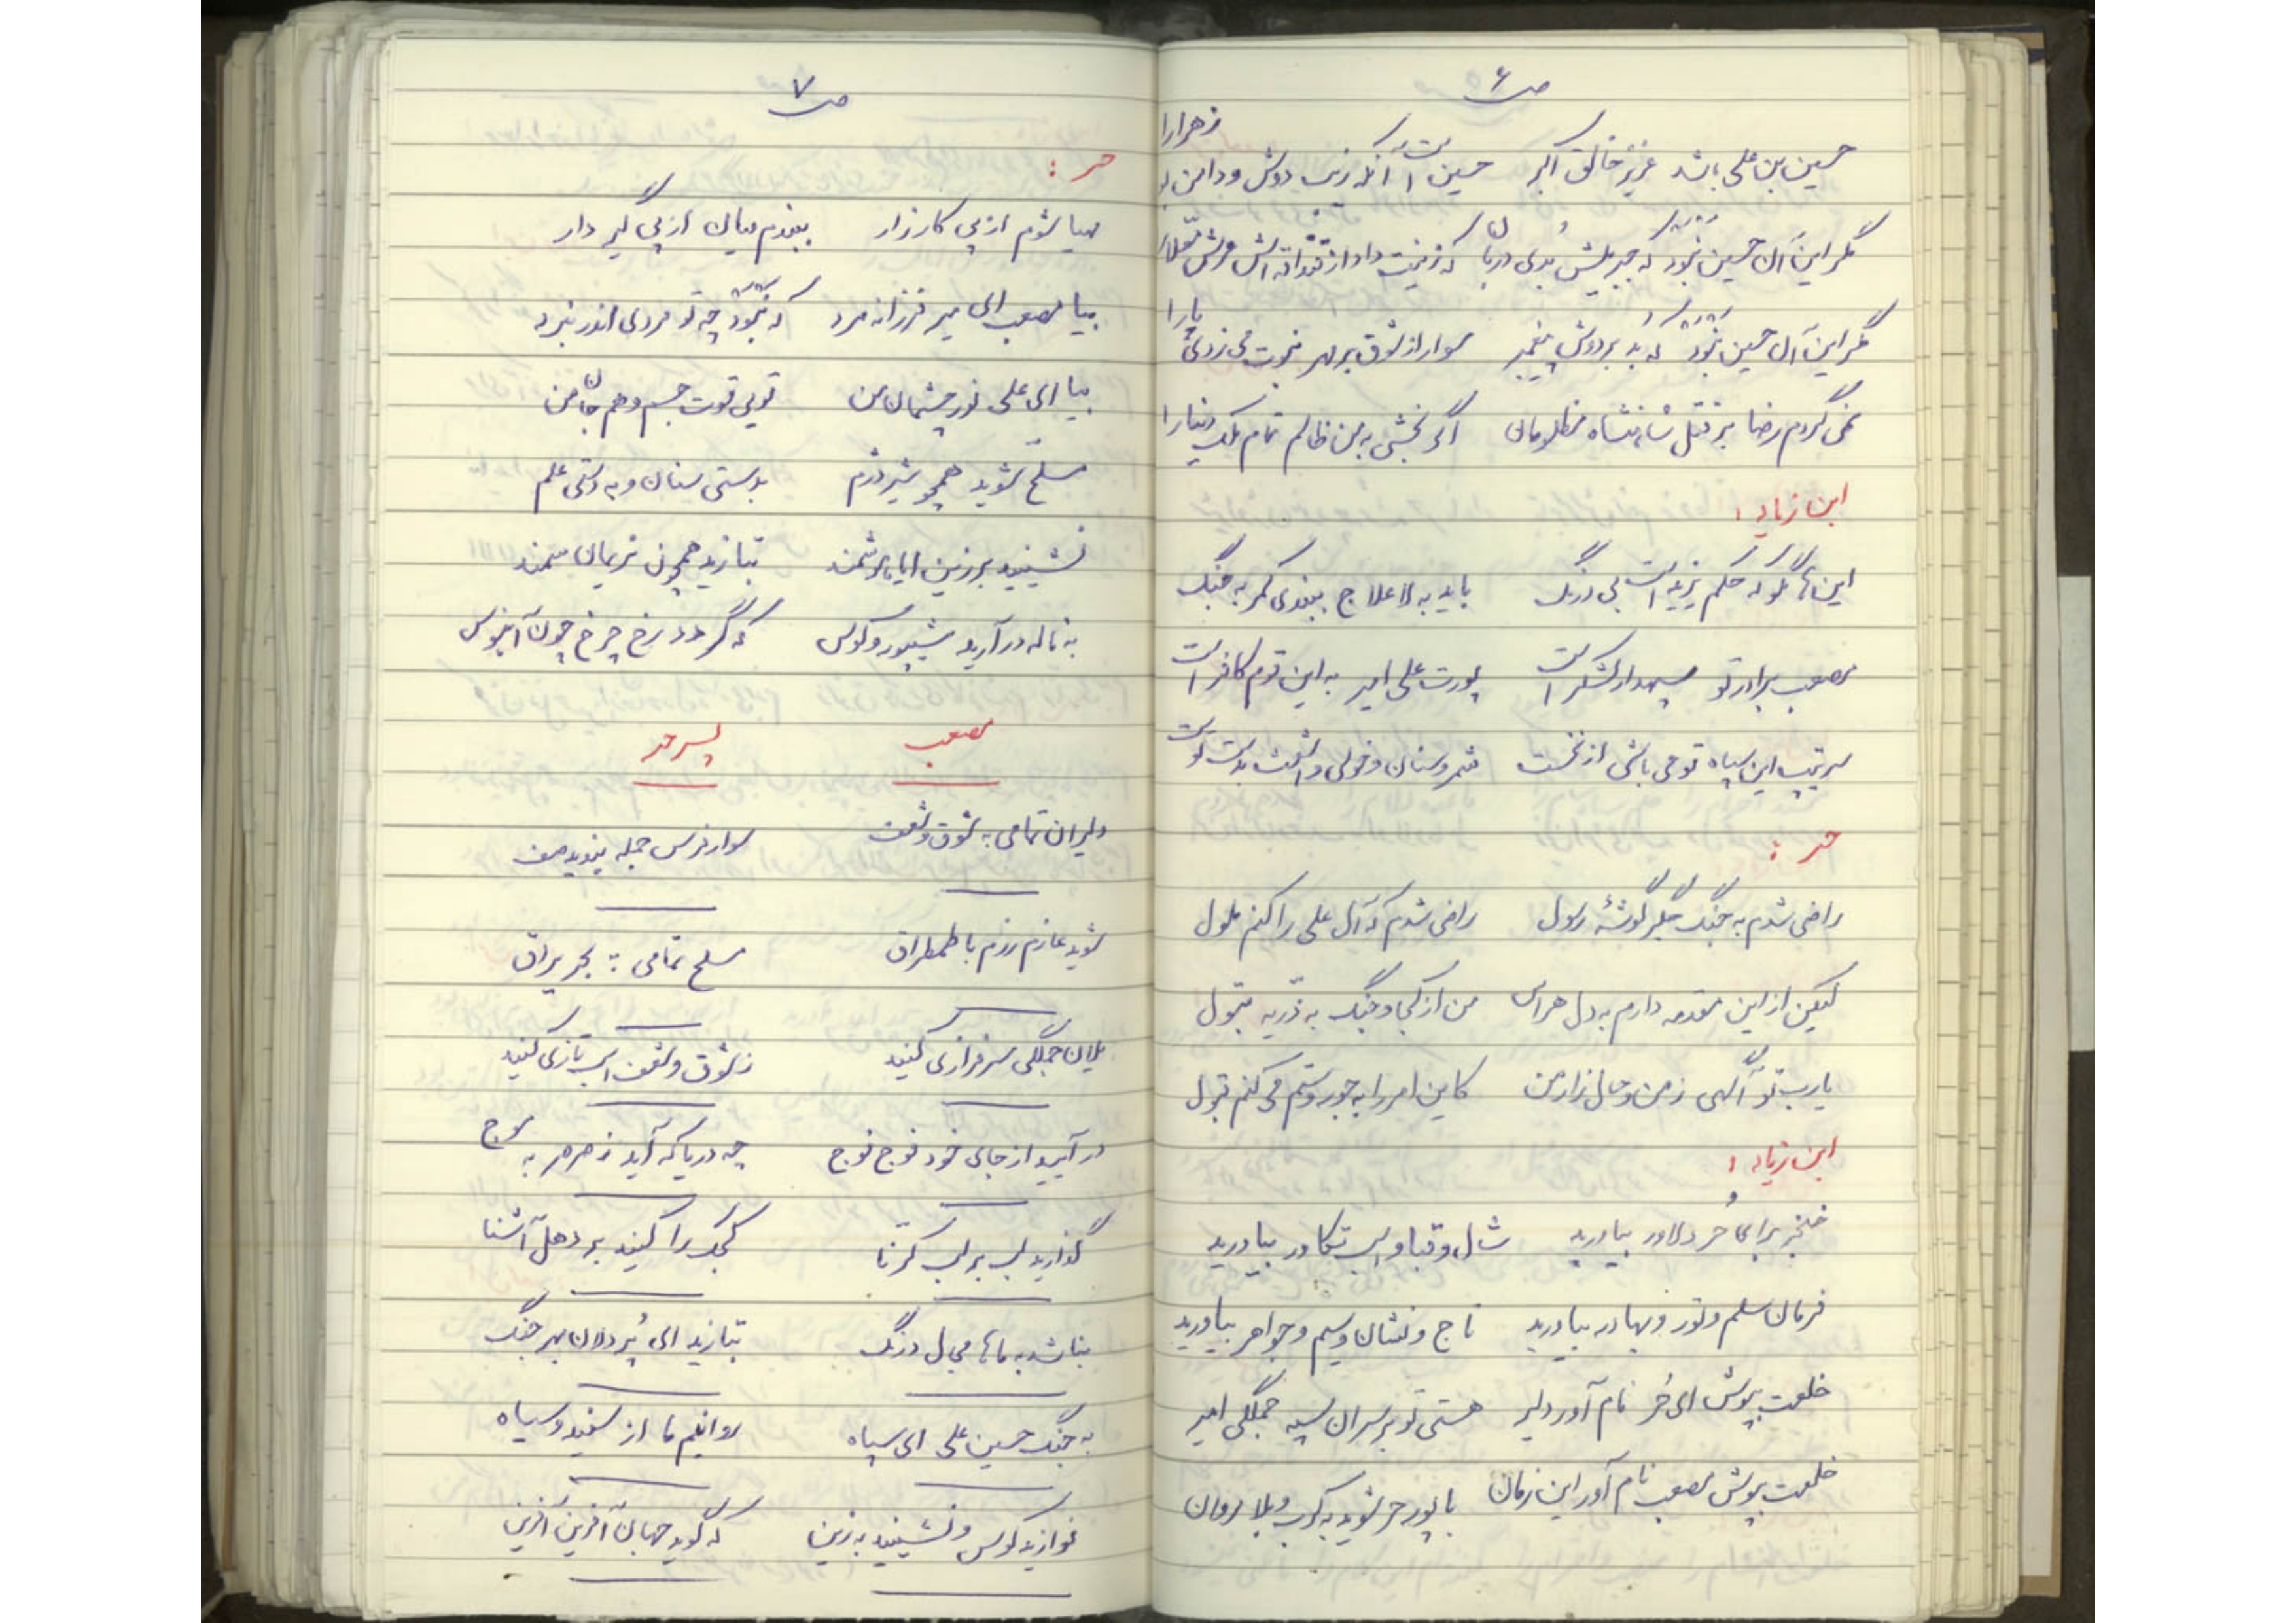 ص ۶
حسین بن علی باشد عزیز خالق اکبر حسین است آنکه زیب دوش و دامن بد زهرا را
مگر این آن حسین نبود که جبریلش بُدی دربان که زینت داد از قنداقه اش عرش معلا را
مگر این آن حسین نبود که بد بر دوش پیغمبر سوار از شوق بر مهر نبوت می زدی پا را
نمی گردم رضا بر قتل شاهنشاه مظلومان اگر بخشی به من ظالم تمام ملک دنیا را
ابن زیاد :
این ها مگو که حکم یزید است بی درنگ باید به لاعلاج ببندی کمر به جنگ
مصعب برادر تو سپهدار لشکر است پورت علی امیر به این قوم کافر است
سرتیپ این سپاه تو می باشی از نخست شمر و سنان و خولی و اشعث بدست توست
حر :
راضی شدم به جنگ جگر گوشهٔ رسول راضی شدم که آل علی را کنم ملول
لیکن از این مقدمه دارم به دل هراس من از کجا و جنگ به ذریه بتول
یارب تو آگهی ز من و حال زار من کاین امر را به جور و ستم می کنم قبول
ابن زیاد :
خنجر برای حُر دلاور بیاورید شال و قبا و اسب تکاور بیاورید
فرمان سلم و تور و بهادر بیاورید تاج و نشان و سیم و جواهر بیاورید
خلعت بپوش ای حُر نام آور دلیر هستی تو بر سران سپه جملگی امیر
خلعت بپوش مصعب نام آور این زمان با پور حر شوید به کرب و بلا روان
ص ۷
حر :
مهیا شوم از پی کارزار ببندم میان از پی گیر دار
بیا مصعب ای میر فرزانه مرد که نبود چه تو مردی اندر نبرد
بیا ای علی نور چشمان من تویی قوت جسم و هم جان من
مسلح شوید همچو شیر دژم بدستی سنان و به دستی علم
نشینید بر زین ایا هوشمند بتازید همچون نریمان سمند
به ناله در آرید شیپور و کوس که گردد رخ چرخ چون آبنوس
مصعب پسر حر
دلیران تمامی به شوق و شعف سوار فرس جمله بندید صف
شوید عازم رزم با طمطراق مسلح تمامی به بحر یراق
یلان جملگی سرفرازی کنید ز شوق و شعف اسب تازی کنید
در آیید از جای خود فوج فوج چه دریا که آید ز صرصر به موج
گذارید لب بر لب کرنا کجک را کنید بر دهل آشنا
نباشد به ماها مجال درنگ بتازید ای پُر دلان بهر جنگ
به جنگ حسین علی ای سپاه روانیم ما از سفید و سیاه
نوازید کوس و نشینید به زین که گوید جهان آفرین آفرین